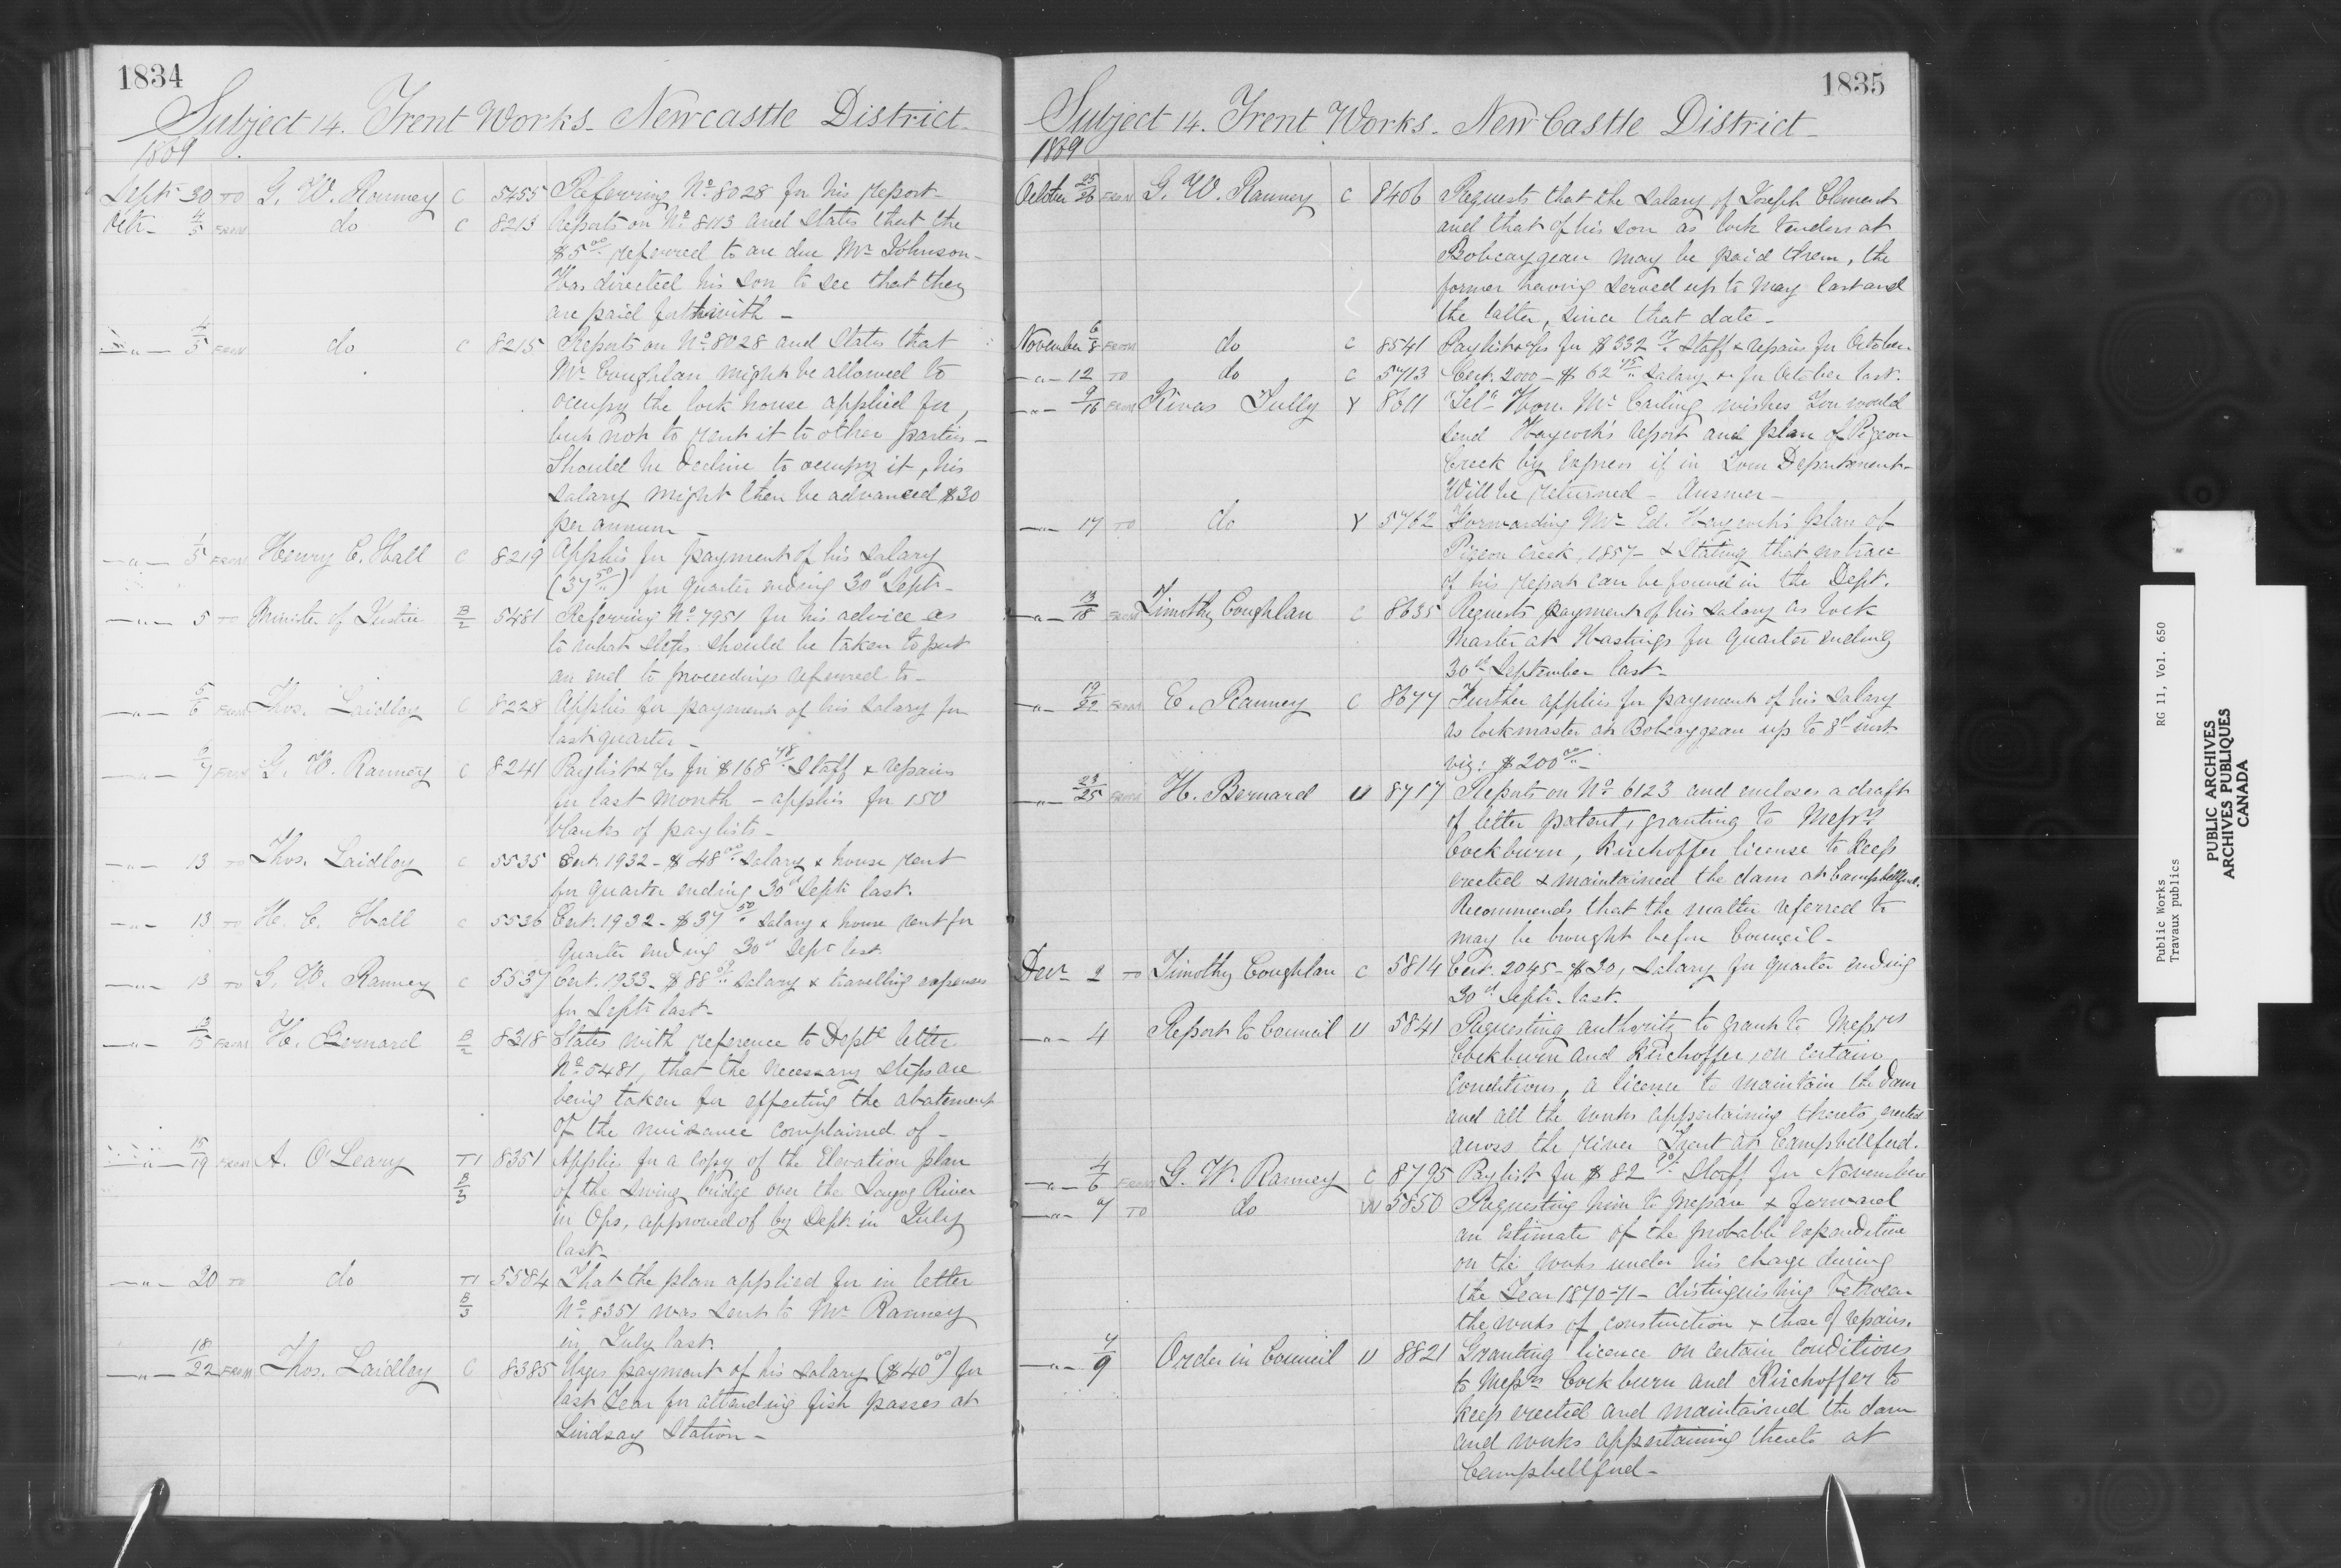 1834
Subject 14. Trent Works - Newcastle District -
1869
Septr 30 TO G. W. Ranney C 5455 Referring No. 8028 for his report -
Octr - 4/5 FROM do C 8213 Reports on No. 8113 and states that the
$5.00 referred to are due Mr Johnson -
Has directed his son to see that they
are paid forthwith -
" 4/5 FROM do C 8215 Reports on No. 8028 and states that
Mr Coughlan might be allowed to
occupy the lock house applied for,
but not to rent it to other parties -
Should he decline to occupy it, his
salary might then be advanced $30
per annum -
" 1/5 FROM Henry C. Hall C 8219 Applies for payment of his salary
(37.50) for quarter ending 30th Septr -
" 5 TO Minister of Justice B/2 5481 Referring No. 7951 for his advice as
to what steps should be taken to put
an end to proceedings referred to -
" 5/6 FROM Thos. Laidley C 8228 Applies for payment of his salary for
last quarter -
" 6/7 FROM G. W. Ranney C 8241 Paylist &c for $168.48 Staff & repairs
for last month - applies for 150
blanks of paylists -
" 13 TO Thos. Laidley C 5535 Cert. 1932 - $48.00 salary & house rent
for quarter ending 30th Septr last.
" 13 TO H. C. Hall C 5536 Cert. 1932 - $37.50 salary & house rent for
Quarter ending 30th Sept last.
" 13 TO G. W. Ranney C 5537 Cert. 1933 - $88 salary & travelling expenses
for Septr last -
" 13/15 FROM H. Bernard B/2 8318 States with reference to Deptl letter
No. 5481, that the necessary steps are
being taken for effecting the abatement
of the nuisance complained of -
" 15/19 FROM A. O'Leary T1 B/3 8351 Applies for a copy of the Elevation plan
of the swing bridge over the Scugog River
in Ops, approved of by Dept in July
last -
" 20 TO do T1 B/3 5584 That the plan applied for in letter
No. 8351 was sent to Mr Ranney
in July last.
" 18/22 FROM Thos. Laidley C 8385 Urges payment of his salary ($40.00) for
last Year for attending fish passes at
Lindsay Station -
1835
Subject 14. Trent Works - New Castle District -
1869
October 25/26 FROM G. W. Ranney C 8406 Requests that the salary of Joseph Clement
and that of his son as lock tenders at
Bobcaygean may be paid them, the
former having served up to May last and
the latter, since that date -
November 6/8 FROM do C 8541 Paylist &c for $332 Staff & repairs for October -
" 12 TO do C 5713 Cert. 2000 - $62 salary &c for October last.
" 9/16 FROM Kivas Tully Y 8611 Telm Hon. Mr Carling wishes You would
send Haycock's report and plan of Pigeon
Creek by Express if in Your Department -
Will be returned - Answer -
" 17 TO do Y 5762 Forwarding Mr Ed. Haycock's plan of
Pigeon Creek, 1857 - & stating that no trace
of his report can be found in the Dept.
" 13/18 FROM Timothy Coughlan C 8635 Requests payment of his salary as lock
master at Hastings for quarter ending
30th September last -
" 19/22 FROM C. Ranney C 8677 Further applies for payment of his salary
as lockmaster at Bobcaygean up to 8th inst
viz: $200.00 -
" 23/25 FROM H. Bernard U 8717 Reports on No. 6123 and encloses a draft
of letter patent, granting to Messrs
Cockburn, Kirchoffer license to keep
erected & maintained the dam at Campbellford.
Recommends that the matter referred to
may be brought before Council -
Decr 2 TO Timothy Coughlan C 5814 Cert. 2045 - $30, salary for quarter ending
30th Septr last.
" 4 Report to Council U 5841 Requesting authority to grant to Messrs
Cockburn and Kirchoffer, on certain
Conditions, a license to maintain the dam
and all the works appertaining thereto, erected
across the river Trent at Campbellford.
" 4/6 FROM G. W. Ranney C 8795 Paylist for $82 Staff for November
" 7 TO do W 5850 Requesting him to prepare & forward
an Estimate of the probable expenditure
on the works under his charge during
the Year 1870-71 - distinguishing between
the works of construction & those of repairs.
" 7/9 Order in Council U 8821 Granting licence on certain Conditions
to Messrs Cockburn and Kirchoffer to
keep erected and maintained the dam
and works appertaining thereto at
Campbellford -
Public Works RG 11, Vol. 650
Travaux publics
PUBLIC ARCHIVES
ARCHIVES PUBLIQUES
CANADA